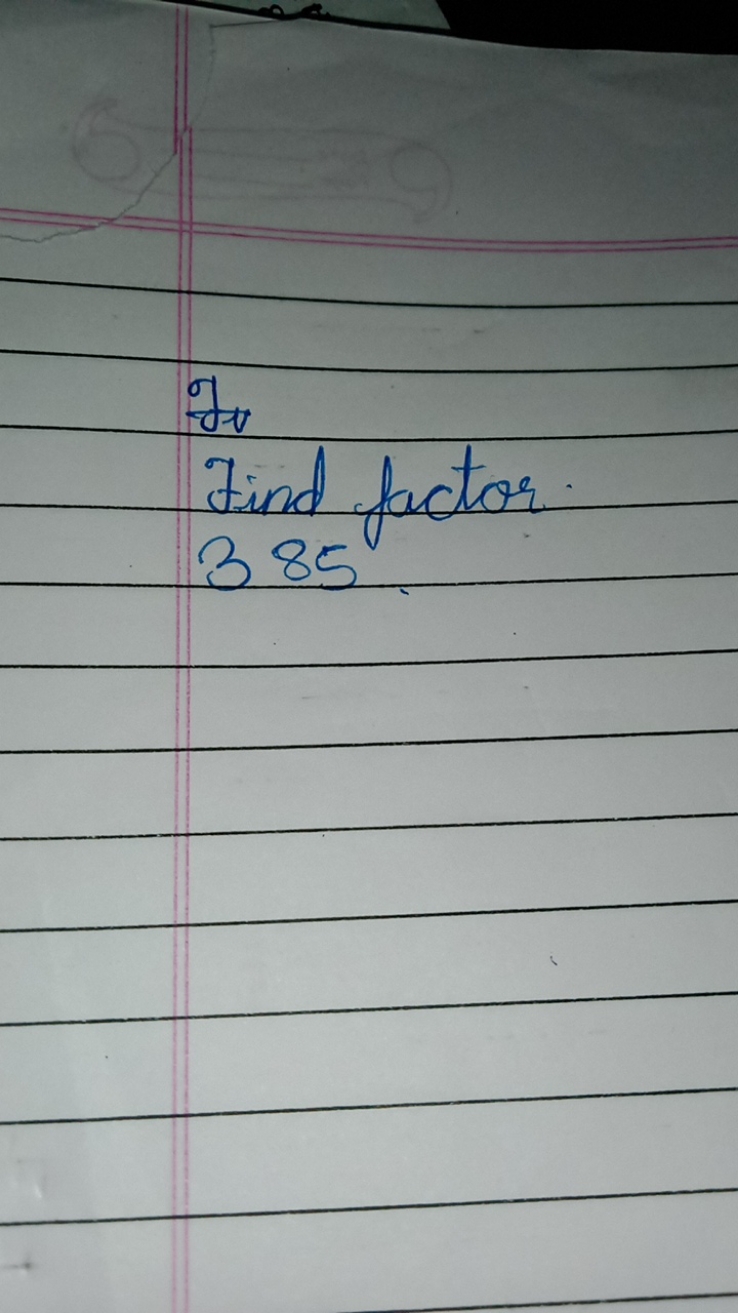 Find factor.
385